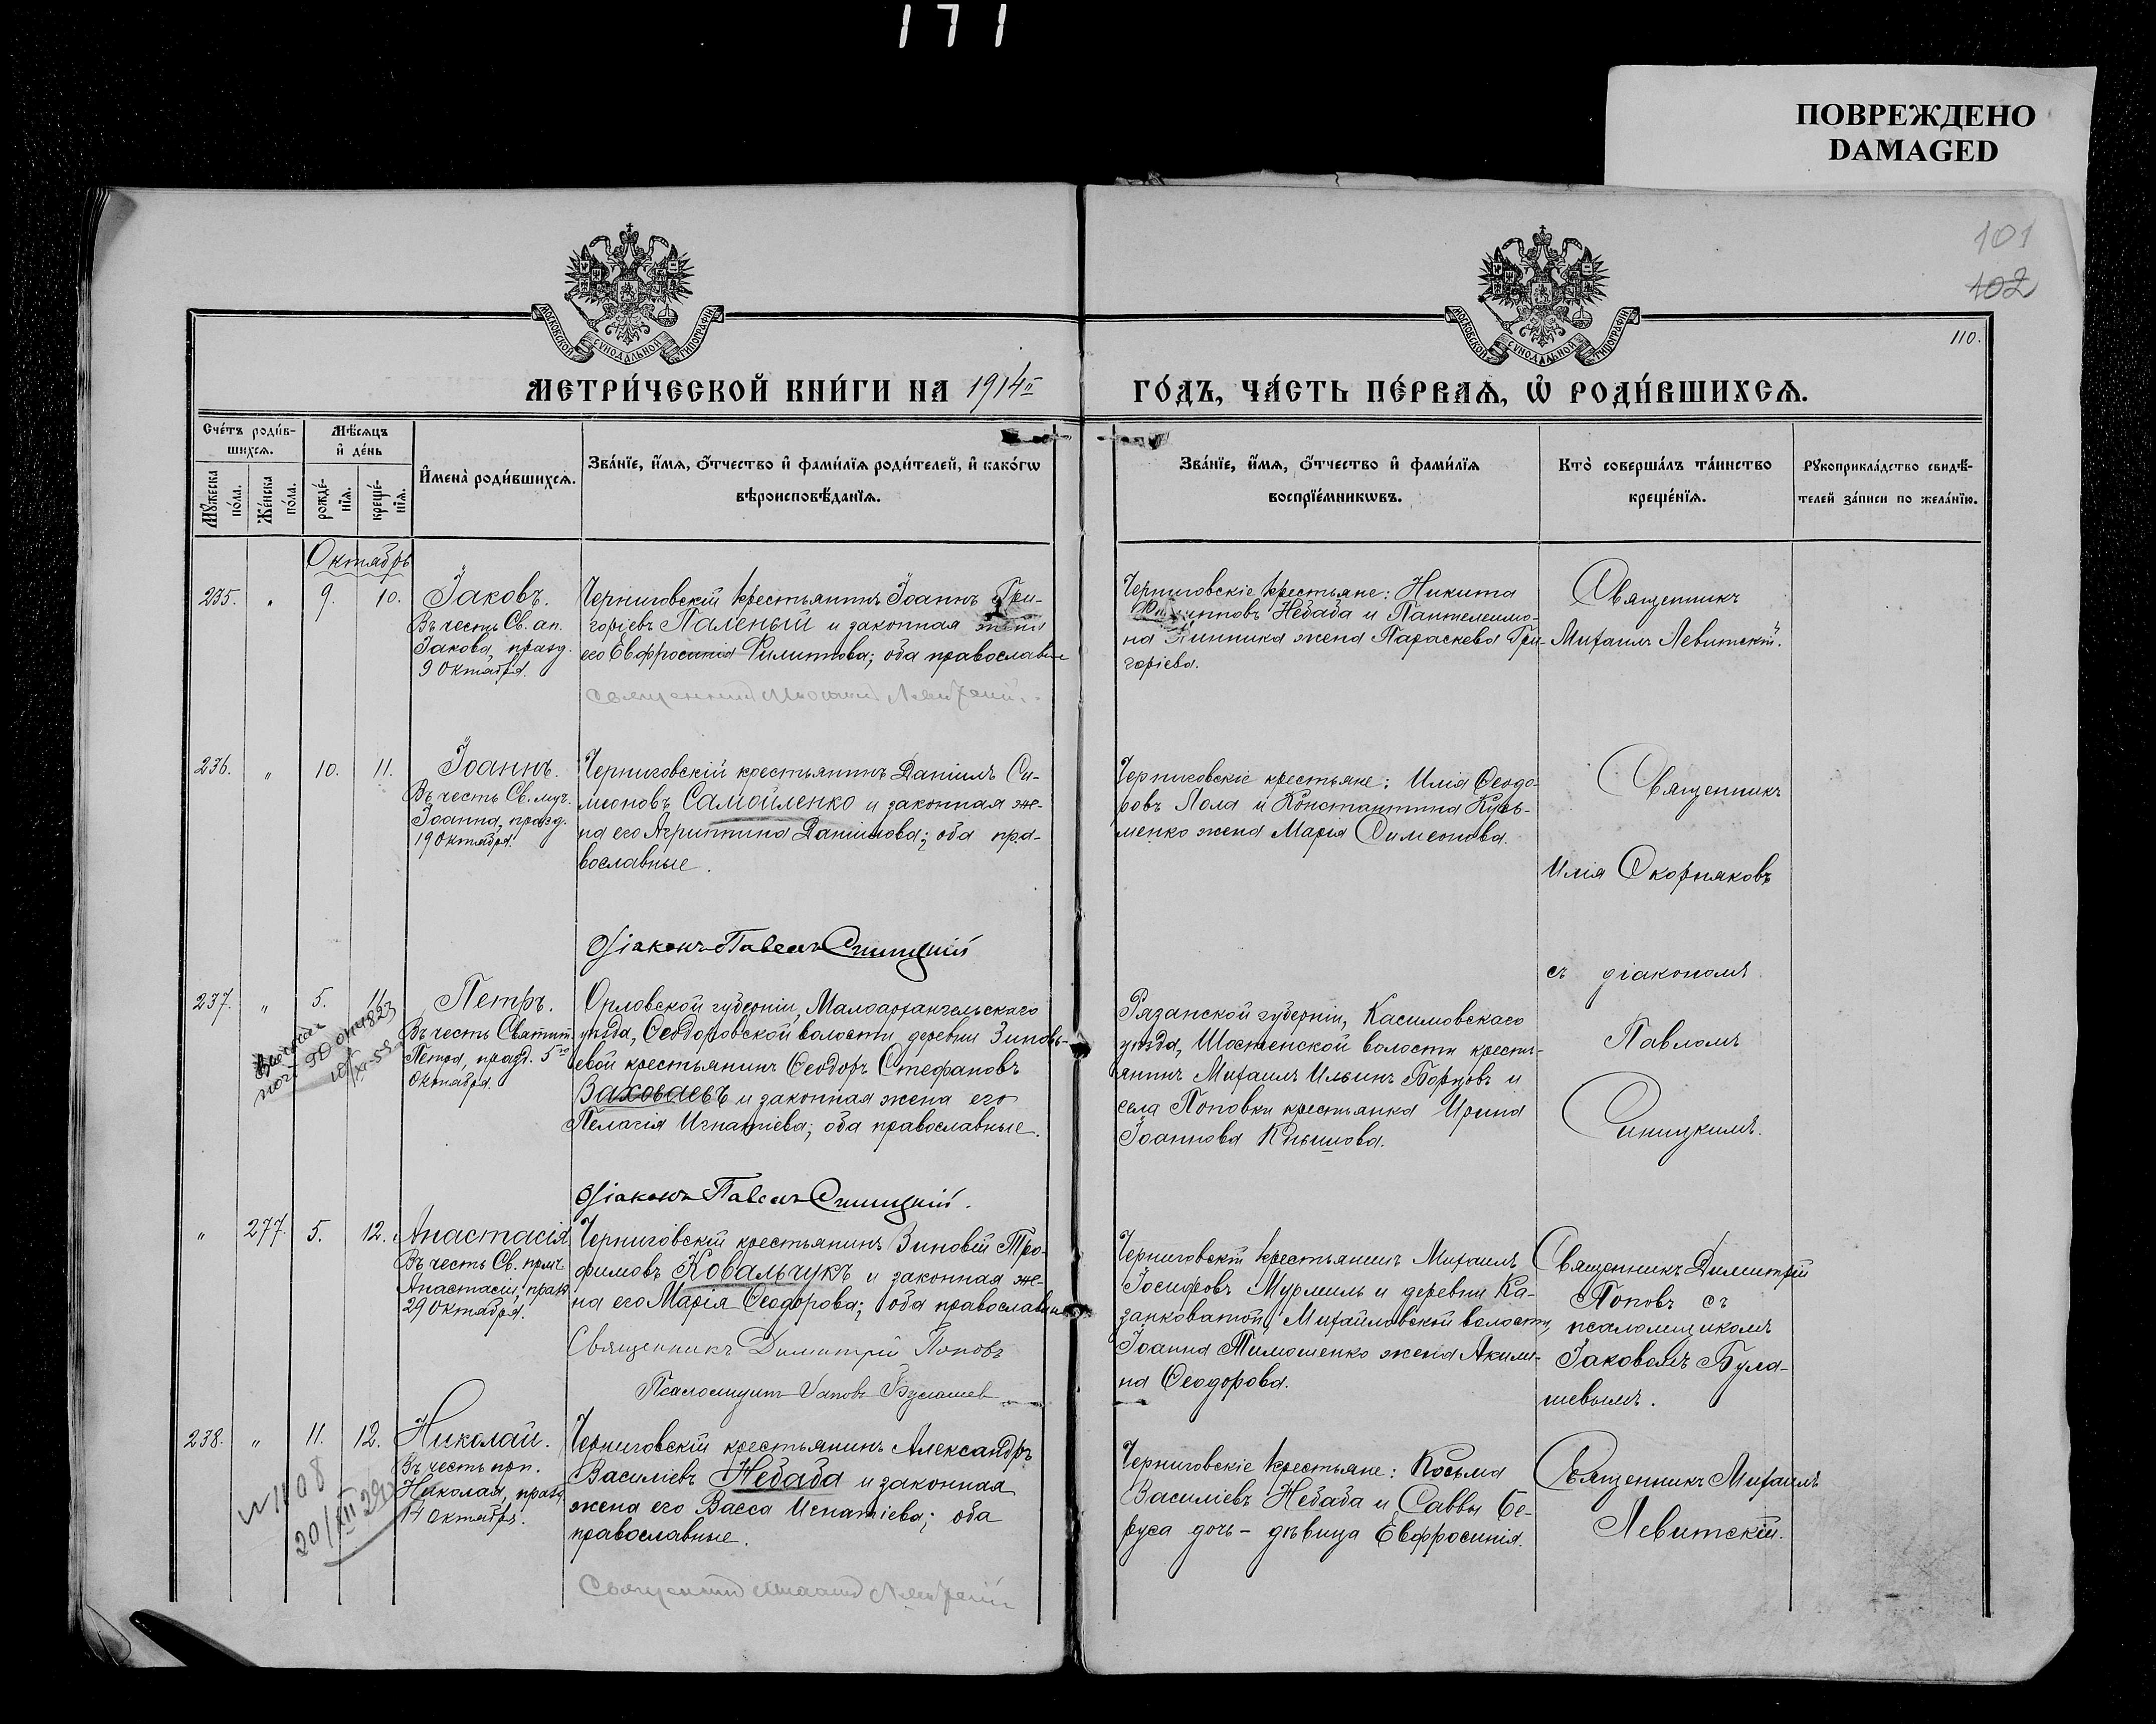 171
ПОВРЕЖДЕНО
DAMAGED
101
102
110.
МОСКОВСКОЙ СУНОДАЛЬНОЙ ТИПОГРАФІИ
МОСКОВСКОЙ СУНОДАЛЬНОЙ ТИПОГРАФІИ
МЕТРИ́ЧЕСКОЙ КНИ́ГИ НА 1914й
ГО́ДЪ, ЧА́СТЬ ПЕ́РВАѦ, Ѡ҆ РОДИ́ВШИХСѦ.
Сче́тъ роди́в-
шихсѧ.
Мѣ́сѧцъ
и҆ де́нь
Мꙋ́жеска
по́ла.
Же́нска
по́ла.
рожде́-
нїѧ.
креще́-
нїѧ.
И҆мена̀ роди́вшихсѧ.
Зва́нїе, и҆́мѧ, ѻ҆́тчество и҆ фами́лїѧ роди́телей, и҆ како́гѡ
вѣроисповѣ́данїѧ.
Зва́нїе, и҆́мѧ, ѻ҆́тчество и҆ фами́лїѧ
воспрїе́мникѡвъ.
Кто̀ соверша́лъ та́инство
креще́нїѧ.
Рꙋкоприкла́дство свидѣ́-
телей за́писи по жела́нїю.
Октябрь
235. " 9. 10. Іаковъ.
Въ честь Св. ап.
Іакова, празд.
9 Октября.
Черниговскій крестьянинъ Іоаннъ Гри-
горіевъ Паленый и законная жена
его Евфросинія Филиппова; оба православные
Черниговскіе крестьяне: Никита
Небаба и Пантелеимо-
на жена Параскева Гри-
горіева.
Священникъ
Михаилъ Левитскій.
236. " 10. 11. Іоаннъ.
Въ честь Св. муч.
Іоанна, празд.
19 Октября.
Черниговскій крестьянинъ Даніилъ Си-
меоновъ Самойленко и законная же-
на его Агриппина Даніилова; оба пра-
вославные.
Черниговскіе крестьяне: Илія Ѳеодо-
ровъ Лола и Константина Кузь-
менко жена Марія Симеонова.
Священникъ
Илія Скорняковъ
Діаконъ Павелъ Синицкій
съ діакономъ
Павломъ
Синицкимъ.
237. " 5. 11. Петръ.
Въ честь Святит.
Петра, празд. 5го
Октября.
Орловской губерніи, Малоархангельскаго
уѣзда, Ѳеодоровской волости деревни Зиновь-
евой крестьянинъ Ѳеодоръ Стефановъ
Заховаевъ и законная жена его
Пелагія Игнатіева; оба православные.
Рязанской губерніи, Касимовскаго
уѣзда, волости кресть-
янинъ Михаилъ Ильинъ Борцовъ и
села Поповки крестьянка Ирина
Іоаннова
Діаконъ Павелъ Синицкій.
" 277. 5. 12. Анастасія
Въ честь Св. прмч.
Анастасіи, празд.
29 Октября.
Черниговскій крестьянинъ Зиновій Тро-
фимовъ Ковальчукъ и законная же-
на его Марія Ѳеодорова; оба православные
Черниговскій крестьянинъ Михаилъ
Іосифовъ Мурмиль и деревни Ка-
занковатой, Михайловской волости,
Іоанна Тимошенко жена Акили-
на Ѳеодорова.
Священникъ Димитрій
Поповъ съ
псаломщикомъ
Іаковомъ Була-
шевымъ.
Священникъ Димитрій Поповъ
Псаломщикъ Іаковъ Булашев
238. " 11. 12. Николай.
Въ честь прп.
Николая, празд.
14 Октября.
Черниговскій крестьянинъ Александръ
Василіевъ Небаба и законная
жена его Васса Игнатіева; оба
православные.
Черниговскіе крестьяне: Косьма
Василіевъ Небаба и Саввы Бе-
руса дочь – дѣвица Евфросинія.
Священникъ Михаилъ
Левитскій.
N 1108